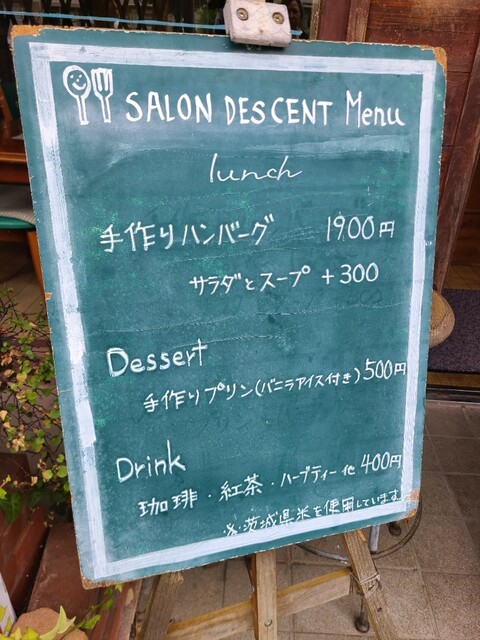 SALON DESCENT Menu
lunch
手作りハンバーグ 1900円
サラダとスープ +300
Dessert
手作りプリン(バニラアイス付き)500円
Drink
珈琲・紅茶・ハーブティー他 400円
※茨城県米を使用しています